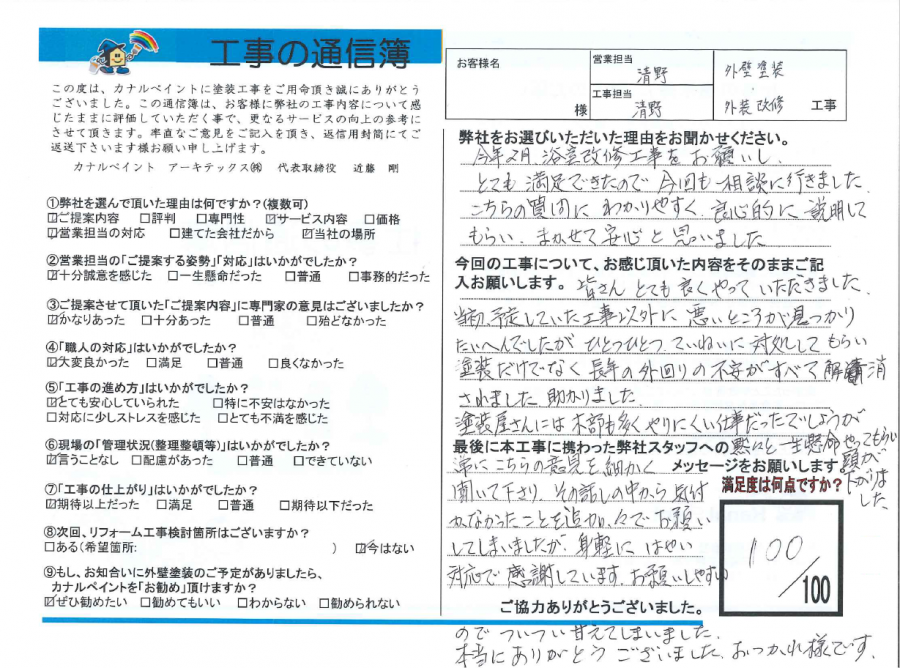 工事の通信簿
この度は、カナルペイントに塗装工事をご用命頂き誠にありがとう
ございました。この通信簿は、お客様に弊社の工事内容について感
じたままに評価していただく事で、更なるサービスの向上の参考に
させて頂きます。率直なご意見をご記入を頂き、返信用封筒にてご
返送下さいます様お願い申し上げます。
カナルペイント アーキテックス㈱ 代表取締役 近藤 剛
①弊社を選んで頂いた理由は何ですか?(複数可)
☑ご提案内容 □評判 □専門性 ☑サービス内容 □価格
☑営業担当の対応 □建てた会社だから ☑当社の場所
②営業担当の「ご提案する姿勢」「対応」はいかがでしたか?
☑十分誠意を感じた □一生懸命だった □普通 □事務的だった
③ご提案させて頂いた「ご提案内容」に専門家の意見はございましたか?
☑かなりあった □十分あった □普通 □殆どなかった
④「職人の対応」はいかがでしたか?
☑大変良かった □満足 □普通 □良くなかった
⑤「工事の進め方」はいかがでしたか?
☑とても安心していられた □特に不安はなかった
□対応に少しストレスを感じた □とても不満を感じた
⑥現場の「管理状況(整理整頓等)」はいかがでしたか?
☑言うことなし □配慮があった □普通 □できていない
⑦「工事の仕上がり」はいかがでしたか?
☑期待以上だった □満足 □普通 □期待以下だった
⑧次回、リフォーム工事検討箇所はございますか?
□ある(希望箇所: ) ☑今はない
⑨もし、お知合いに外壁塗装のご予定がありましたら、
カナルペイントを「お勧め」頂けますか?
☑ぜひ勧めたい □勧めてもいい □わからない □勧められない
お客様名 様
営業担当 清野
工事担当 清野
外壁塗装
外装改修 工事
弊社をお選びいただいた理由をお聞かせください。
今年2月、浴室改修工事をお願いし、
とても満足できたので今回も相談に行きました。
こちらの質問にわかりやすく、良心的に説明して
もらい、まかせて安心と思いました
今回の工事について、お感じ頂いた内容をそのままご記
入お願いします。皆さんとても良くやっていただきました。
当初、予定していた工事以外に悪いところが見つかり
たいへんでしたがひとつひとつ、ていねいに対処してもらい
塗装だけでなく長年の外回りの不安がすべて解消
されました。助かりました。
塗装屋さんには木部も多くやりにくい仕事だったでしょうが
黙々と一生懸命やってもらい
頭が
下がりま
した
最後に本工事に携わった弊社スタッフへの
メッセージをお願いします。
常にこちらの意見を細かく
聞いて下さり、その話しの中から気付
かなかったことを追加、々でお願い
してしまいましたが、身軽にはやい
対応で感謝しています。お願いしやすい
満足度は何点ですか?
100/100
ご協力ありがとうございました。
のでついつい甘えてしまいました。
本当にありがとうございました。おつかれ様です。